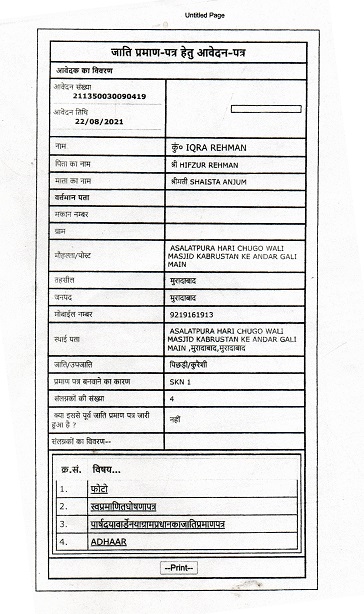 Untitled Page
जाति प्रमाण-पत्र हेतु आवेदन-पत्र
आवेदक का विवरण
आवेदन संख्या
211350030090419
आवेदन तिथि
22/08/2021
नाम कुं० IQRA REHMAN
पिता का नाम श्री HIFZUR REHMAN
माता का नाम श्रीमती SHAISTA ANJUM
वर्तमान पता
मकान नम्बर
ग्राम
मौहल्ला/पोस्ट ASALATPURA HARI CHUGO WALI
MASJID KABRUSTAN KE ANDAR GALI
MAIN
तहसील मुरादाबाद
जनपद मुरादाबाद
मोबाईल नम्बर 9219161913
स्थाई पता ASALATPURA HARI CHUGO WALI
MASJID KABRUSTAN KE ANDAR GALI
MAIN ,मुरादाबाद,मुरादाबाद
जाति/उपजाति पिछड़ी/कुरेशी
प्रमाण पत्र बनवाने का कारण SKN 1
संलग्नकों की संख्या 4
क्या इससे पूर्व जाति प्रमाण पत्र जारी नहीं
हुआ है ?
संलग्नकों का विवरण--
क्र.सं. विषय...
1. फोटो
2. स्वप्रमाणितघोषणापत्र
3. पार्षदयावार्डनयाग्रामप्रधानकाजातिप्रमाणपत्र
4. ADHAAR
--Print--